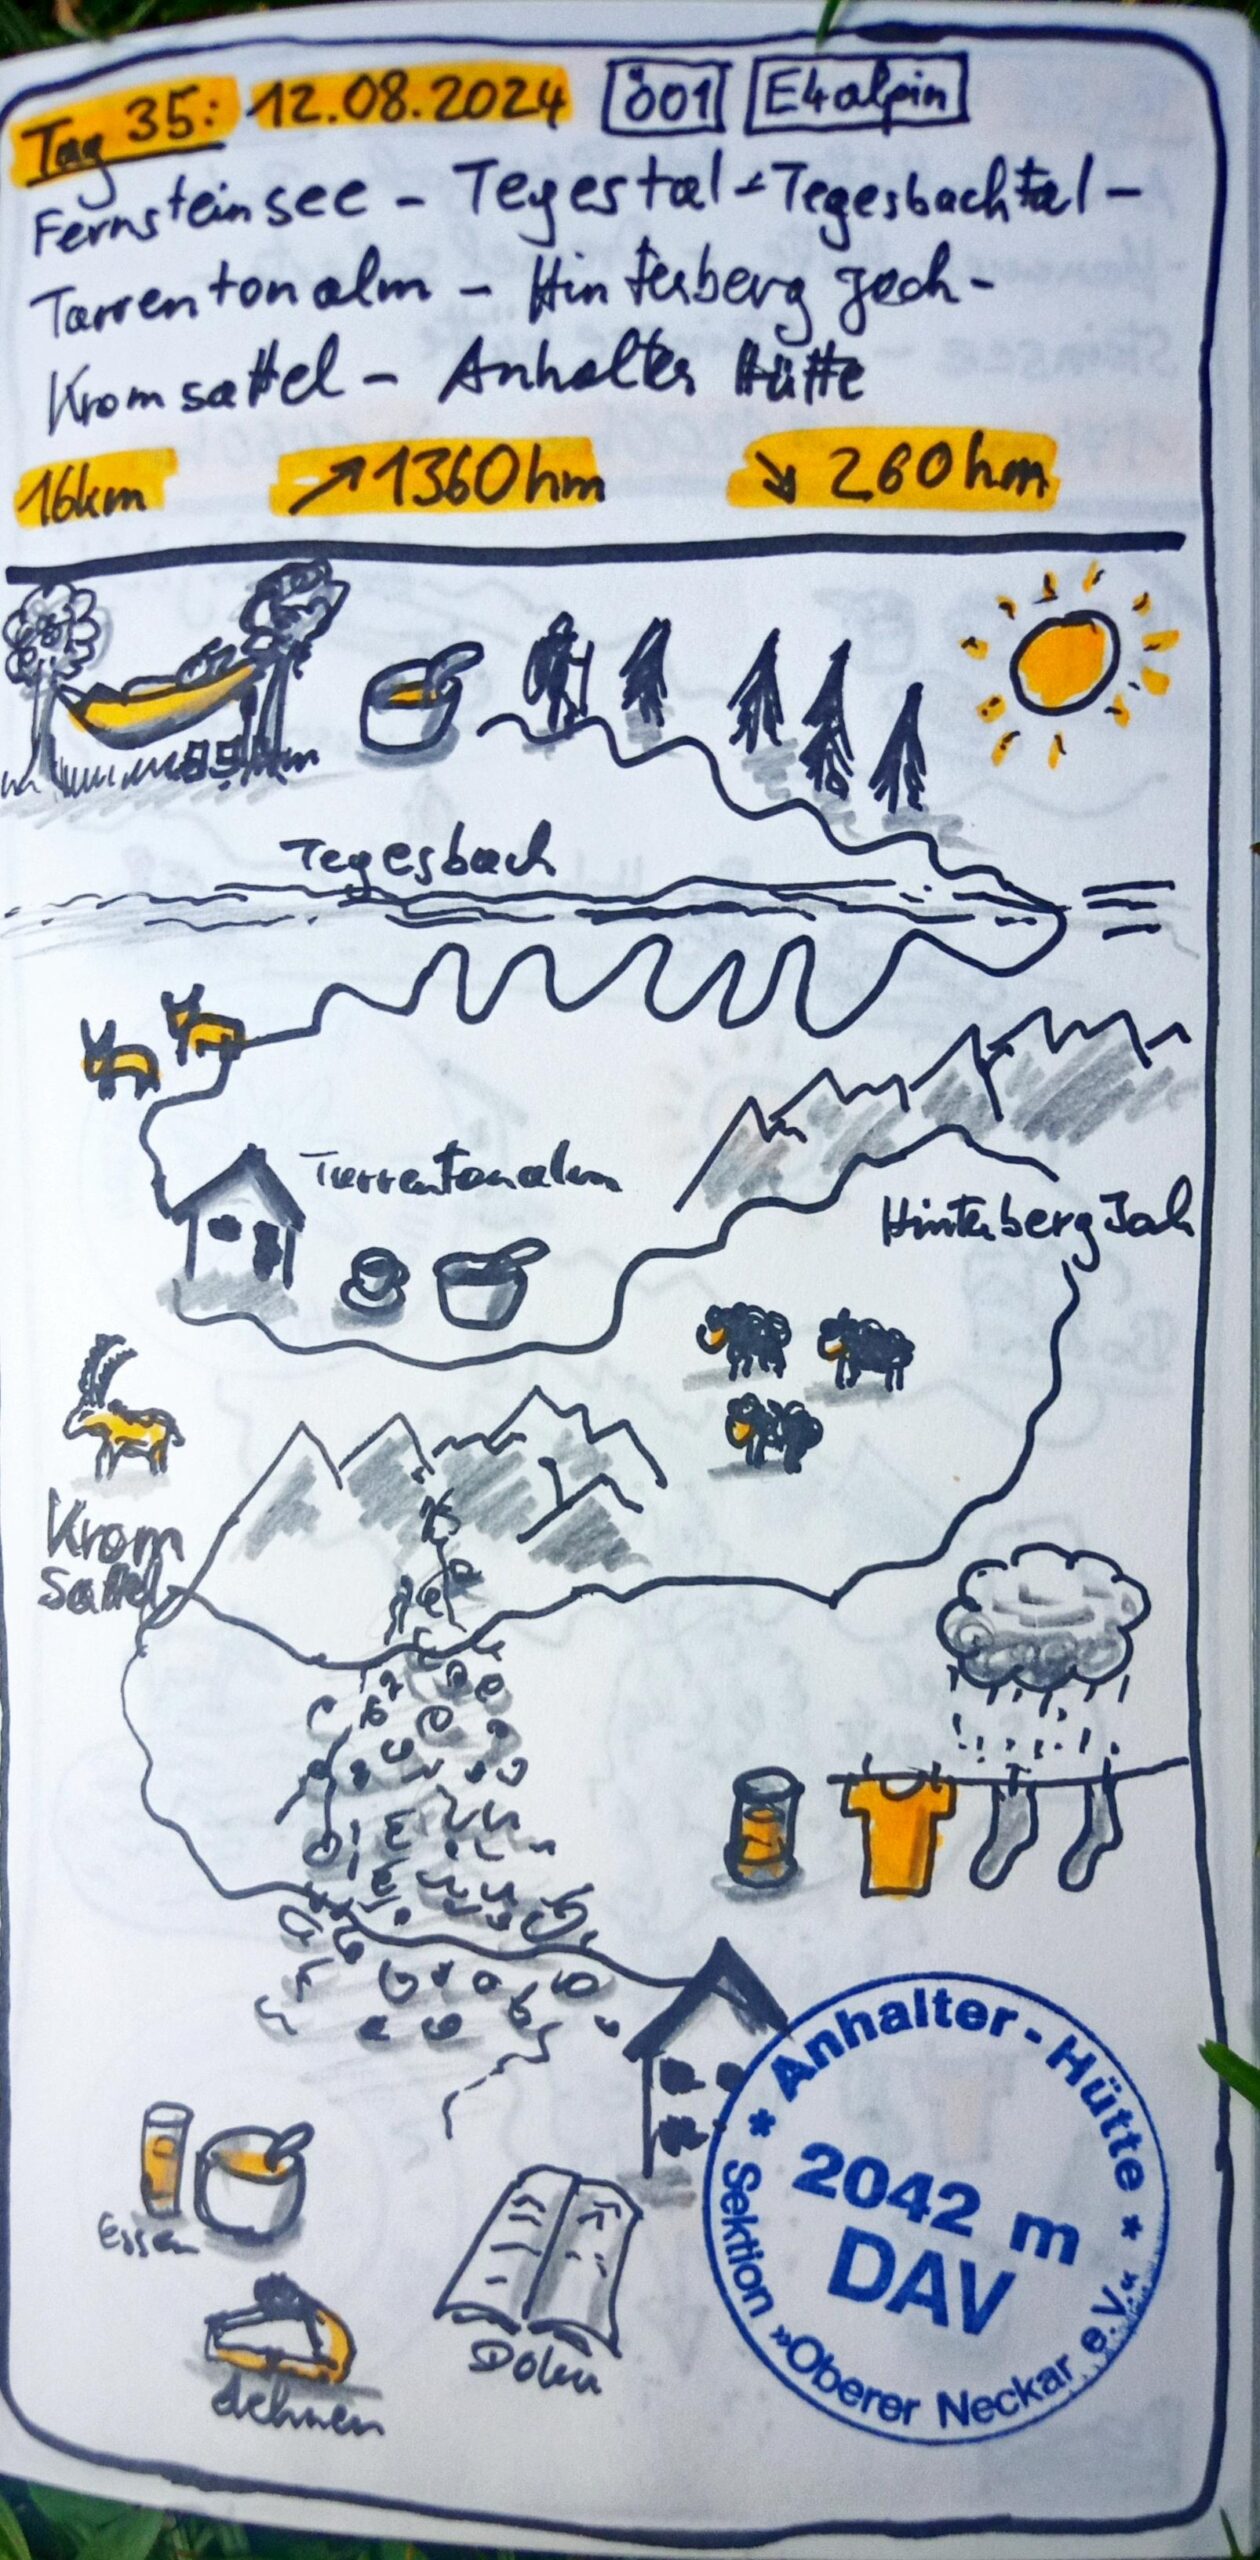 Tag 35: 12.08.2024 Ö01 E4alpin
Fernsteinsee - Tegestal - Tegesbachtal -
Tarrentonalm - Hinterberg Joch -
Kromsattel - Anhalter Hütte
16km ↗1360hm ↘ 260hm
Tegesbach
Tarrentonalm
Hinterberg Joch
Krom
Sattel
Anhalter-Hütte
2042 m
DAV
Sektion »Oberer Neckar e.V.«
Essen
Doku
Dehnen